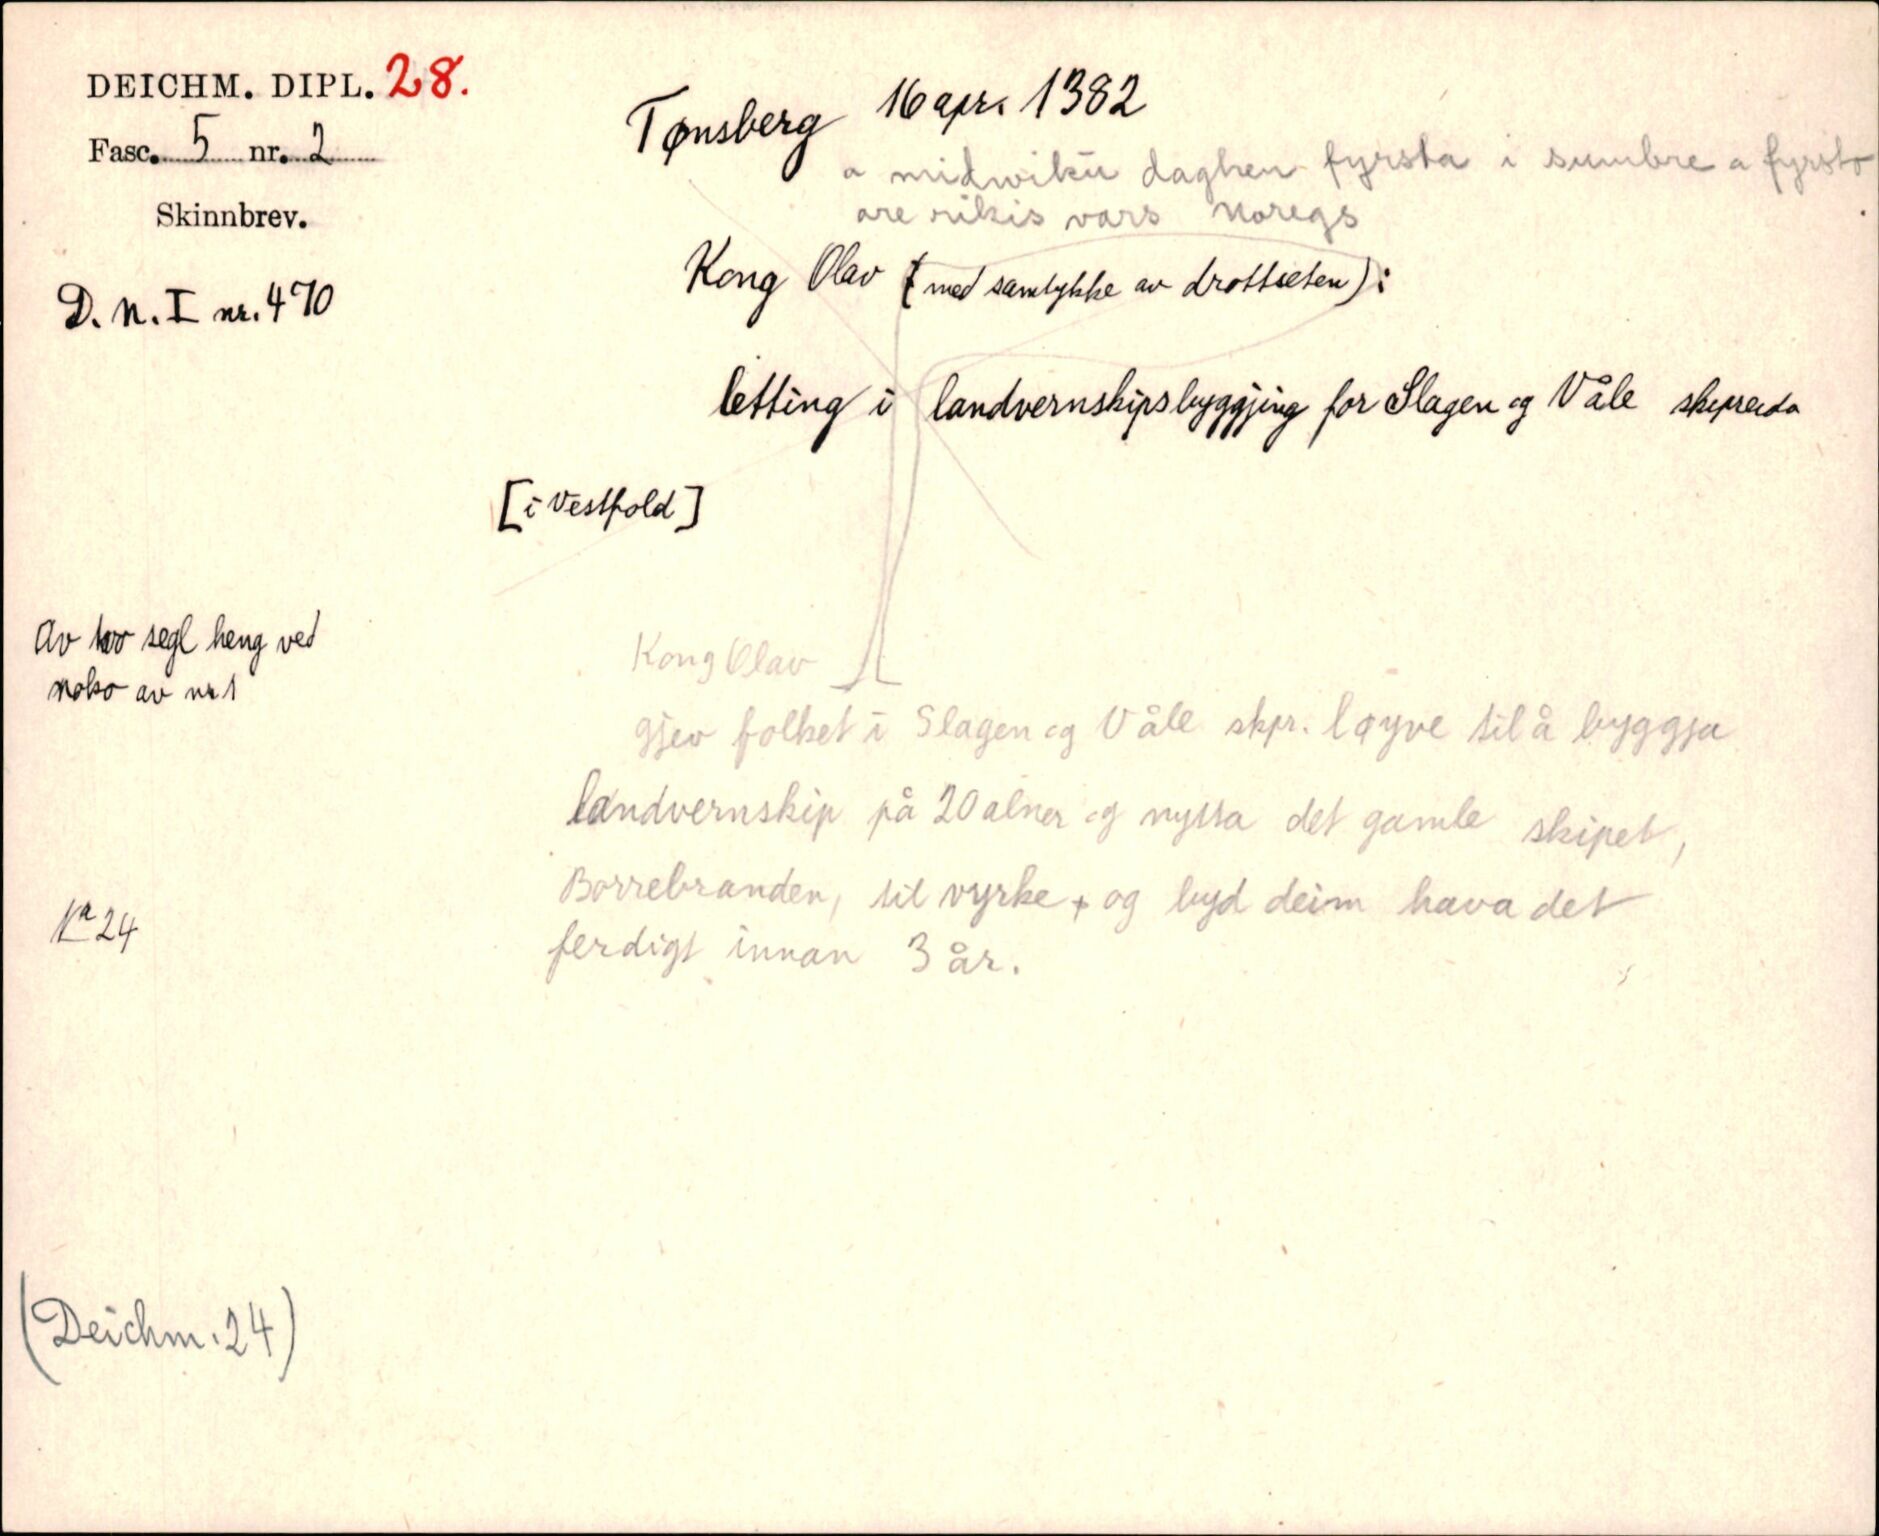 DEICHM. DIPL. 28.
Fasc. 5 nr. 2
Skinnbrev.
D. N. I nr. 470
Tønsberg 16 apr. 1382
a midwiku daghen fyrsta i sumbre a fyrsto
are rikis vars Noregs
Kong Olav (med samtykke av drottseten):
letting i landvernskipsbyggjing for Slagen og Våle skipreida
[i Vestfold]
Av two segl heng ved
noko av nr 1
Kong Olav
gjev folket i Slagen og Våle skpr. løyve til å byggja
landvernskip på 20 alner og nytta det gamle skipet,
Borrebranden, til vyrke, og byd deim hava det
ferdigt innan 3 år.
24
(Deichm. 24)